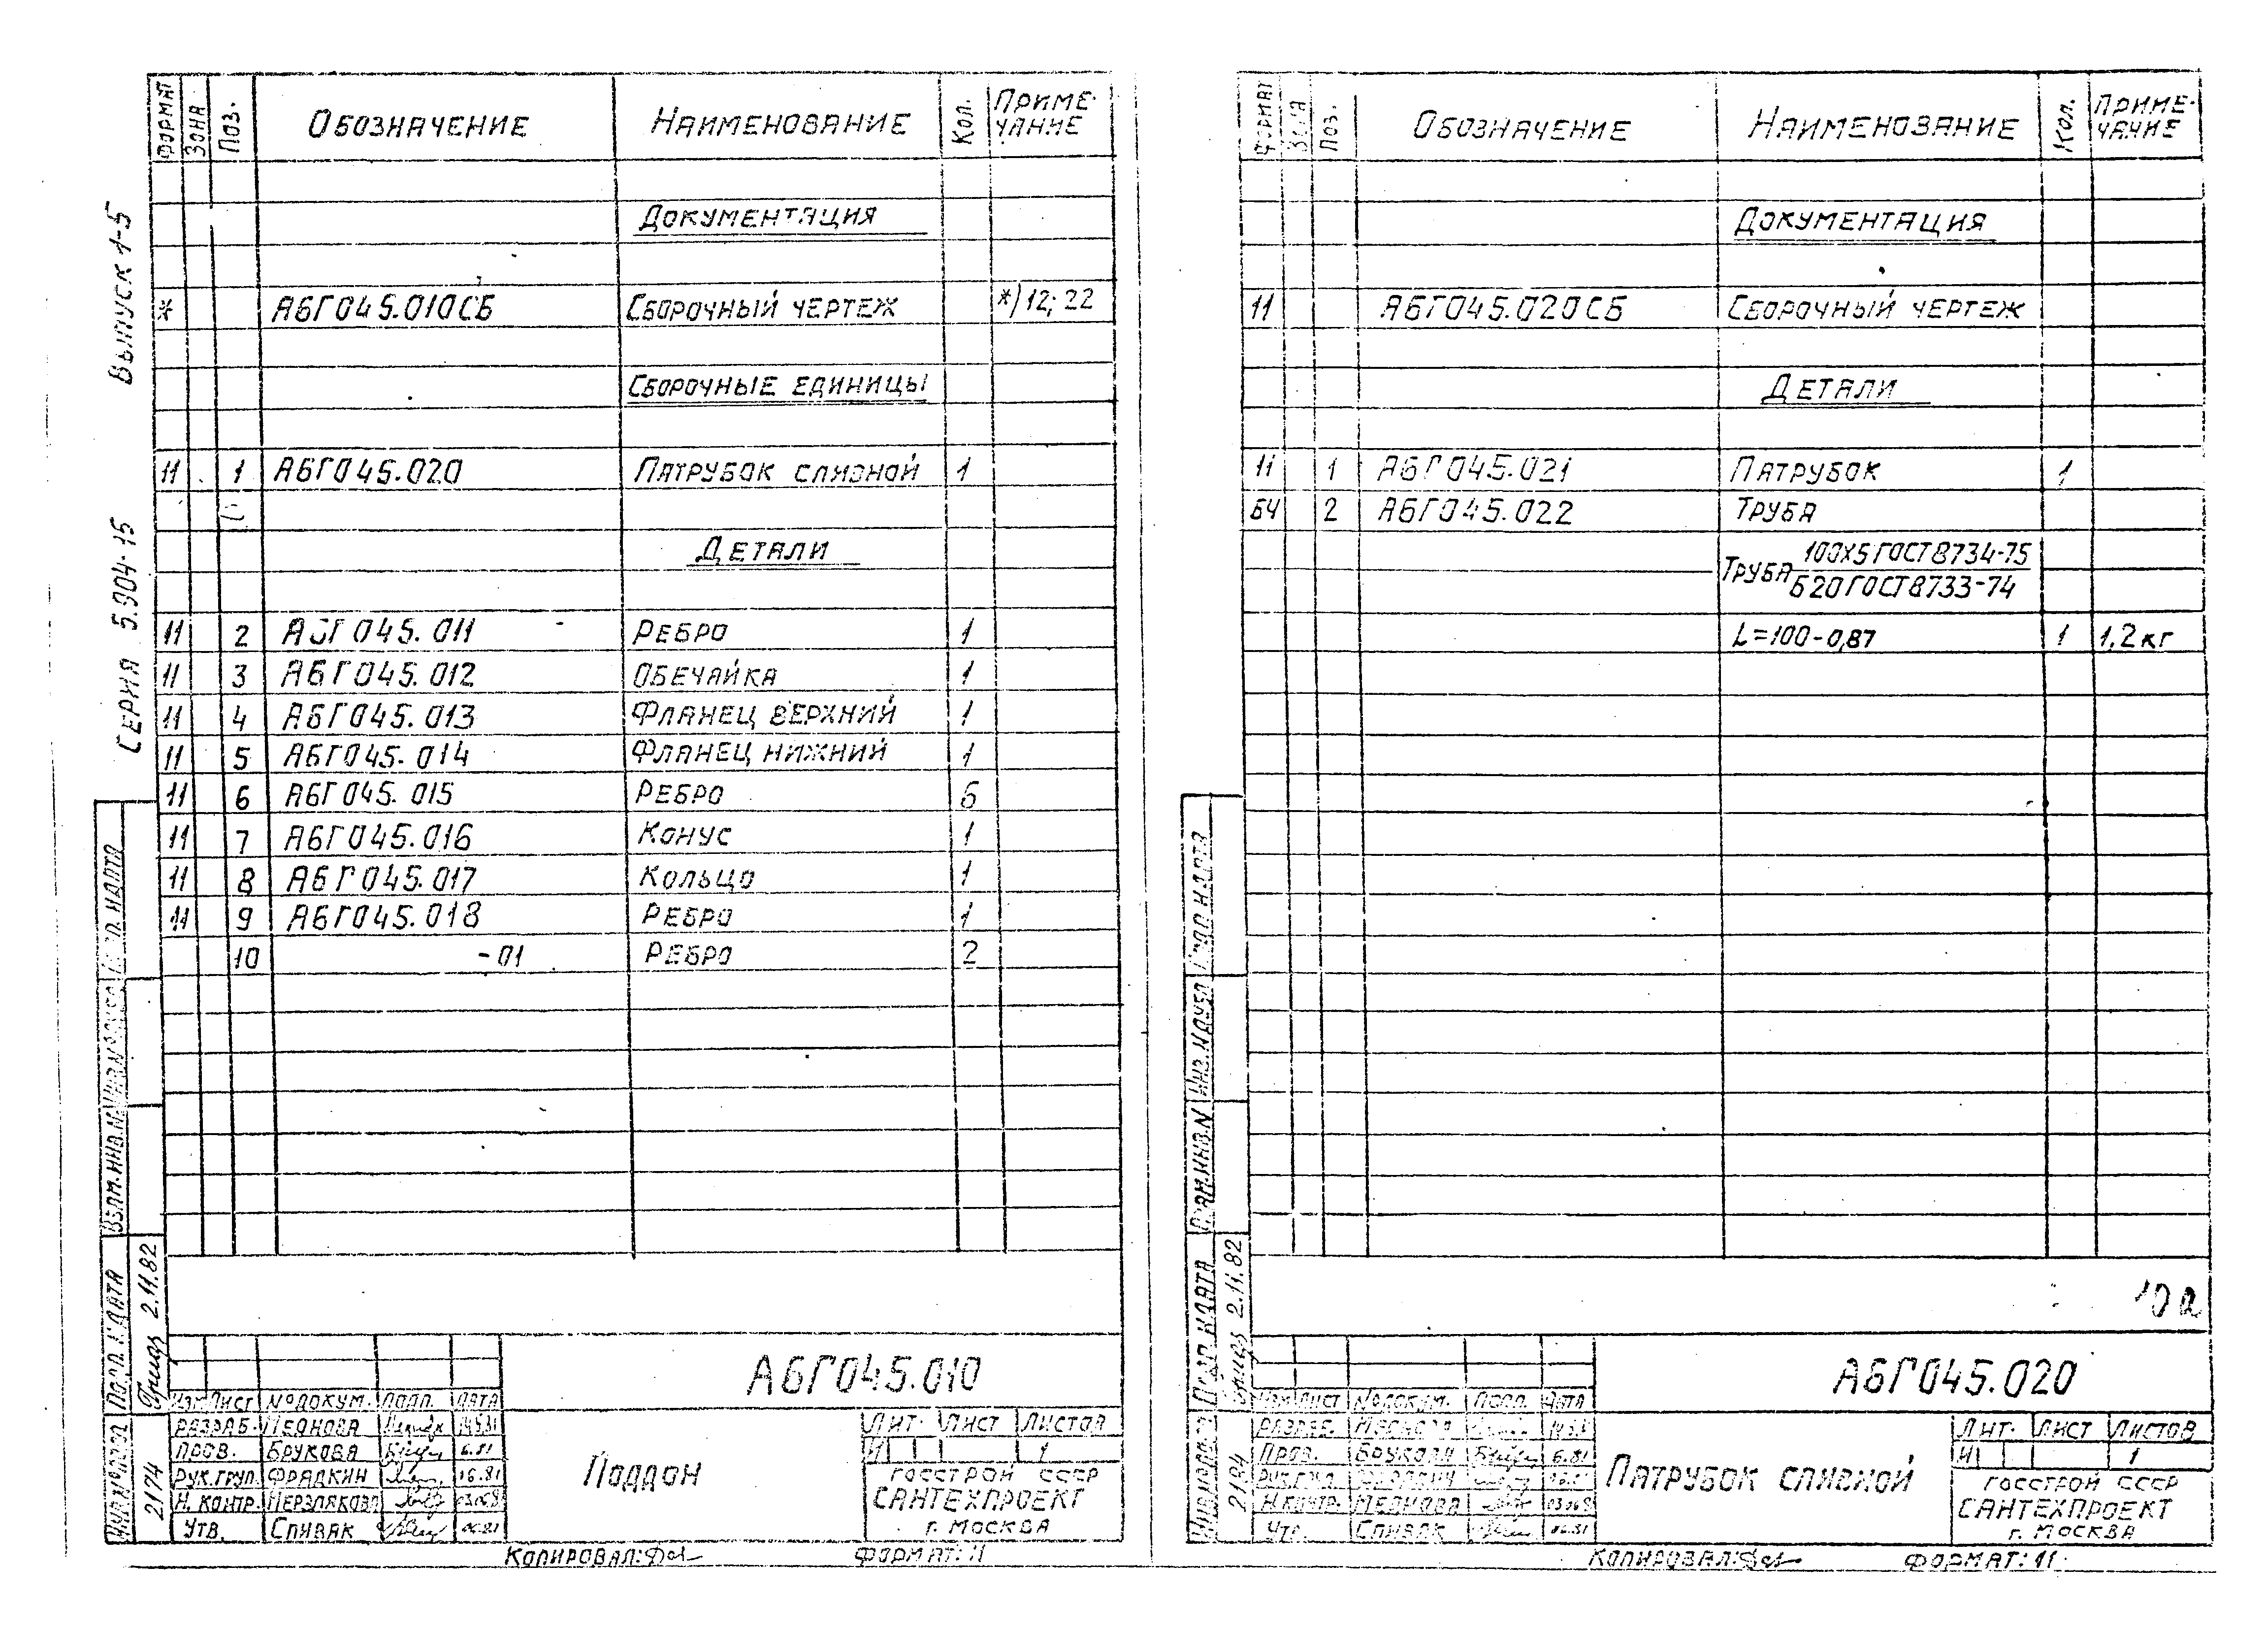 Выпуск 1-5
Серия 5.904-15
Формат Зона Поз. Обозначение Наименование Кол. Примечание
Документация
* А6Г045.010СБ Сборочный чертеж *) 12; 22
Сборочные единицы
11 1 А6Г045.020 Патрубок сливной 1
Детали
11 2 А6Г045.011 Ребро 1
11 3 А6Г045.012 Обечайка 1
11 4 А6Г045.013 Фланец верхний 1
11 5 А6Г045.014 Фланец нижний 1
11 6 А6Г045.015 Ребро 6
11 7 А6Г045.016 Конус 1
11 8 А6Г045.017 Кольцо 1
11 9 А6Г045.018 Ребро 1
10 -01 Ребро 2
Взам. инв. №
Подп. и дата
2.11.82
2174
А6Г045.010
Изм Лист № докум. Подп. Дата
Разраб. Леонова
Пров. Брукова 6.81
Рук. груп. Фрадкин 06.81
Н. контр.
Утв. Спивак 06.81
Поддон
Лит. Лист Листов
И 1
Госстрой СССР
Сантехпроект
г. Москва
Копировал: Формат: 11
Формат Зона Поз. Обозначение Наименование Кол. Примечание
Документация
11 А6Г045.020СБ Сборочный чертеж
Детали
11 1 А6Г045.021 Патрубок 1
БЧ 2 А6Г045.022 Труба
Труба 100х5 ГОСТ 8734-75
Б20 ГОСТ 8733-74
L=100-0,87 1 1,2 кг
2.11.82
10а
А6Г045.020
Изм Лист № докум. Подп. Дата
Разраб.
Пров. Брукова 6.81
Н. контр.
Утв. Спивак 06.81
Патрубок сливной
Лит. Лист Листов
И 1
Госстрой СССР
Сантехпроект
г. Москва
Копировал: Формат: 11